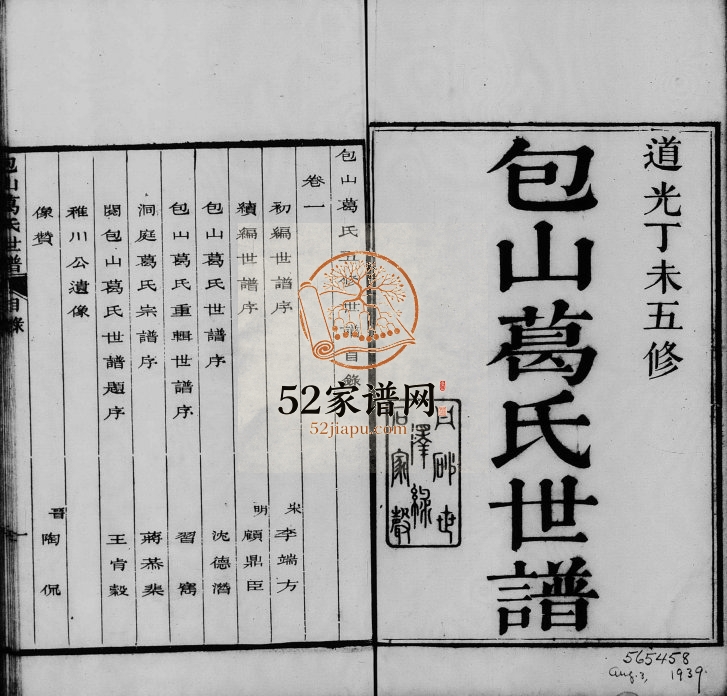 道光丁未五修
包山葛氏世譜
包山葛氏五修世譜目錄
卷一
初編世譜序 宋 李端方
續編世譜序 明 顧鼎臣
包山葛氏世譜序 沈德潛
包山葛氏重輯世譜序 習寯
洞庭葛氏宗譜序 蔣恭棐
閱包山葛氏世譜題序 王肯穀
稚川公遺像
像贊 晉 陶侃
包山葛氏世譜 目錄 一
52家谱网
52jiapu.com
565458
Aug. 3, 1939.